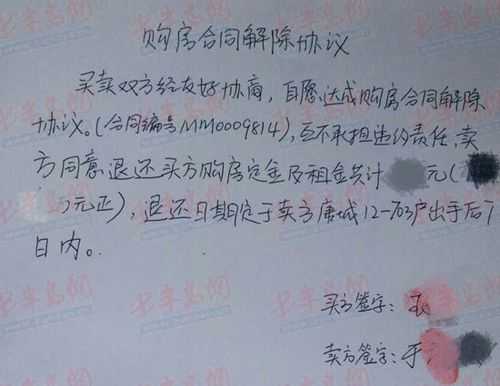 购房合同解除协议
买卖双方经友好协商，自愿达成购房合同解除
协议。(合同编号MM0009814)，互不承担违约责任，卖
方同意退还买方购房定金及租金共计 元(
元正)，退还日期定于卖方唐城12-703户出手后7
日内。
买方签字：
卖方签字：于
半岛网